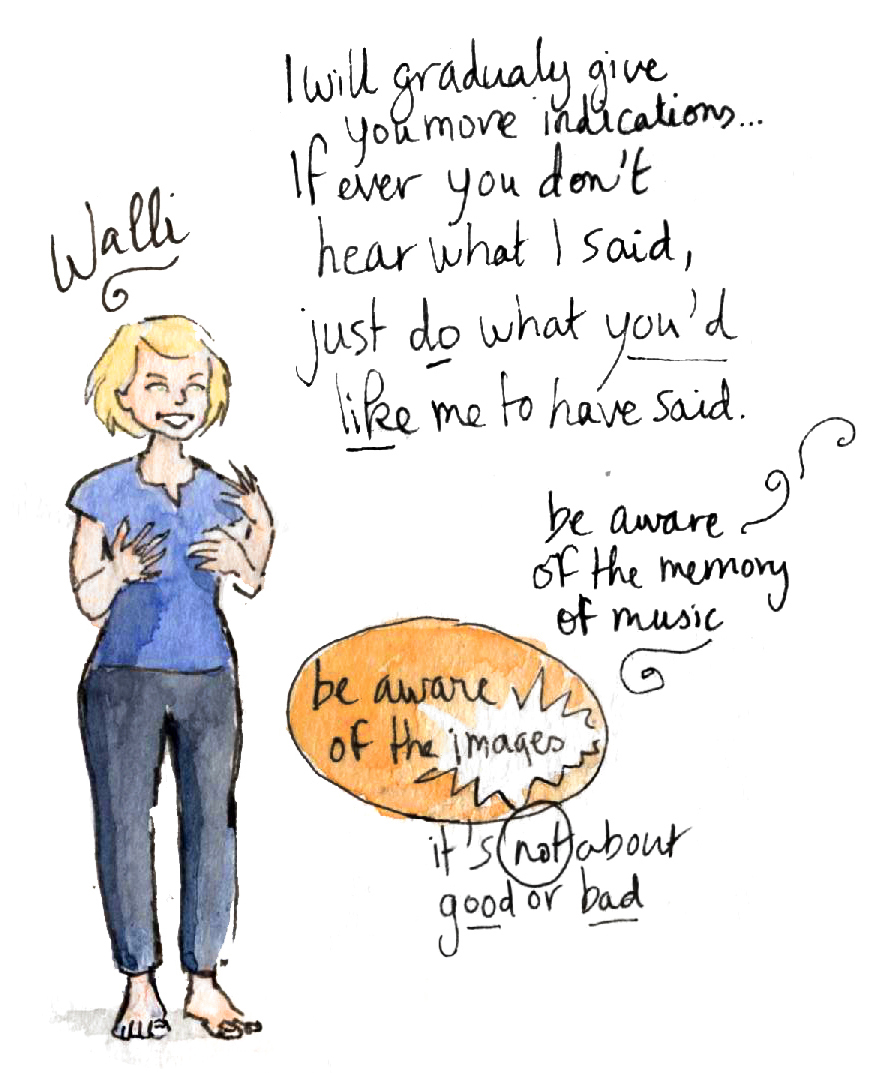 Walli
I will gradualy give
you more indications...
If ever you don't
hear what I said,
just do what you'd
like me to have said.
be aware
of the memory
of music
be aware
of the images
it's not about
good or bad